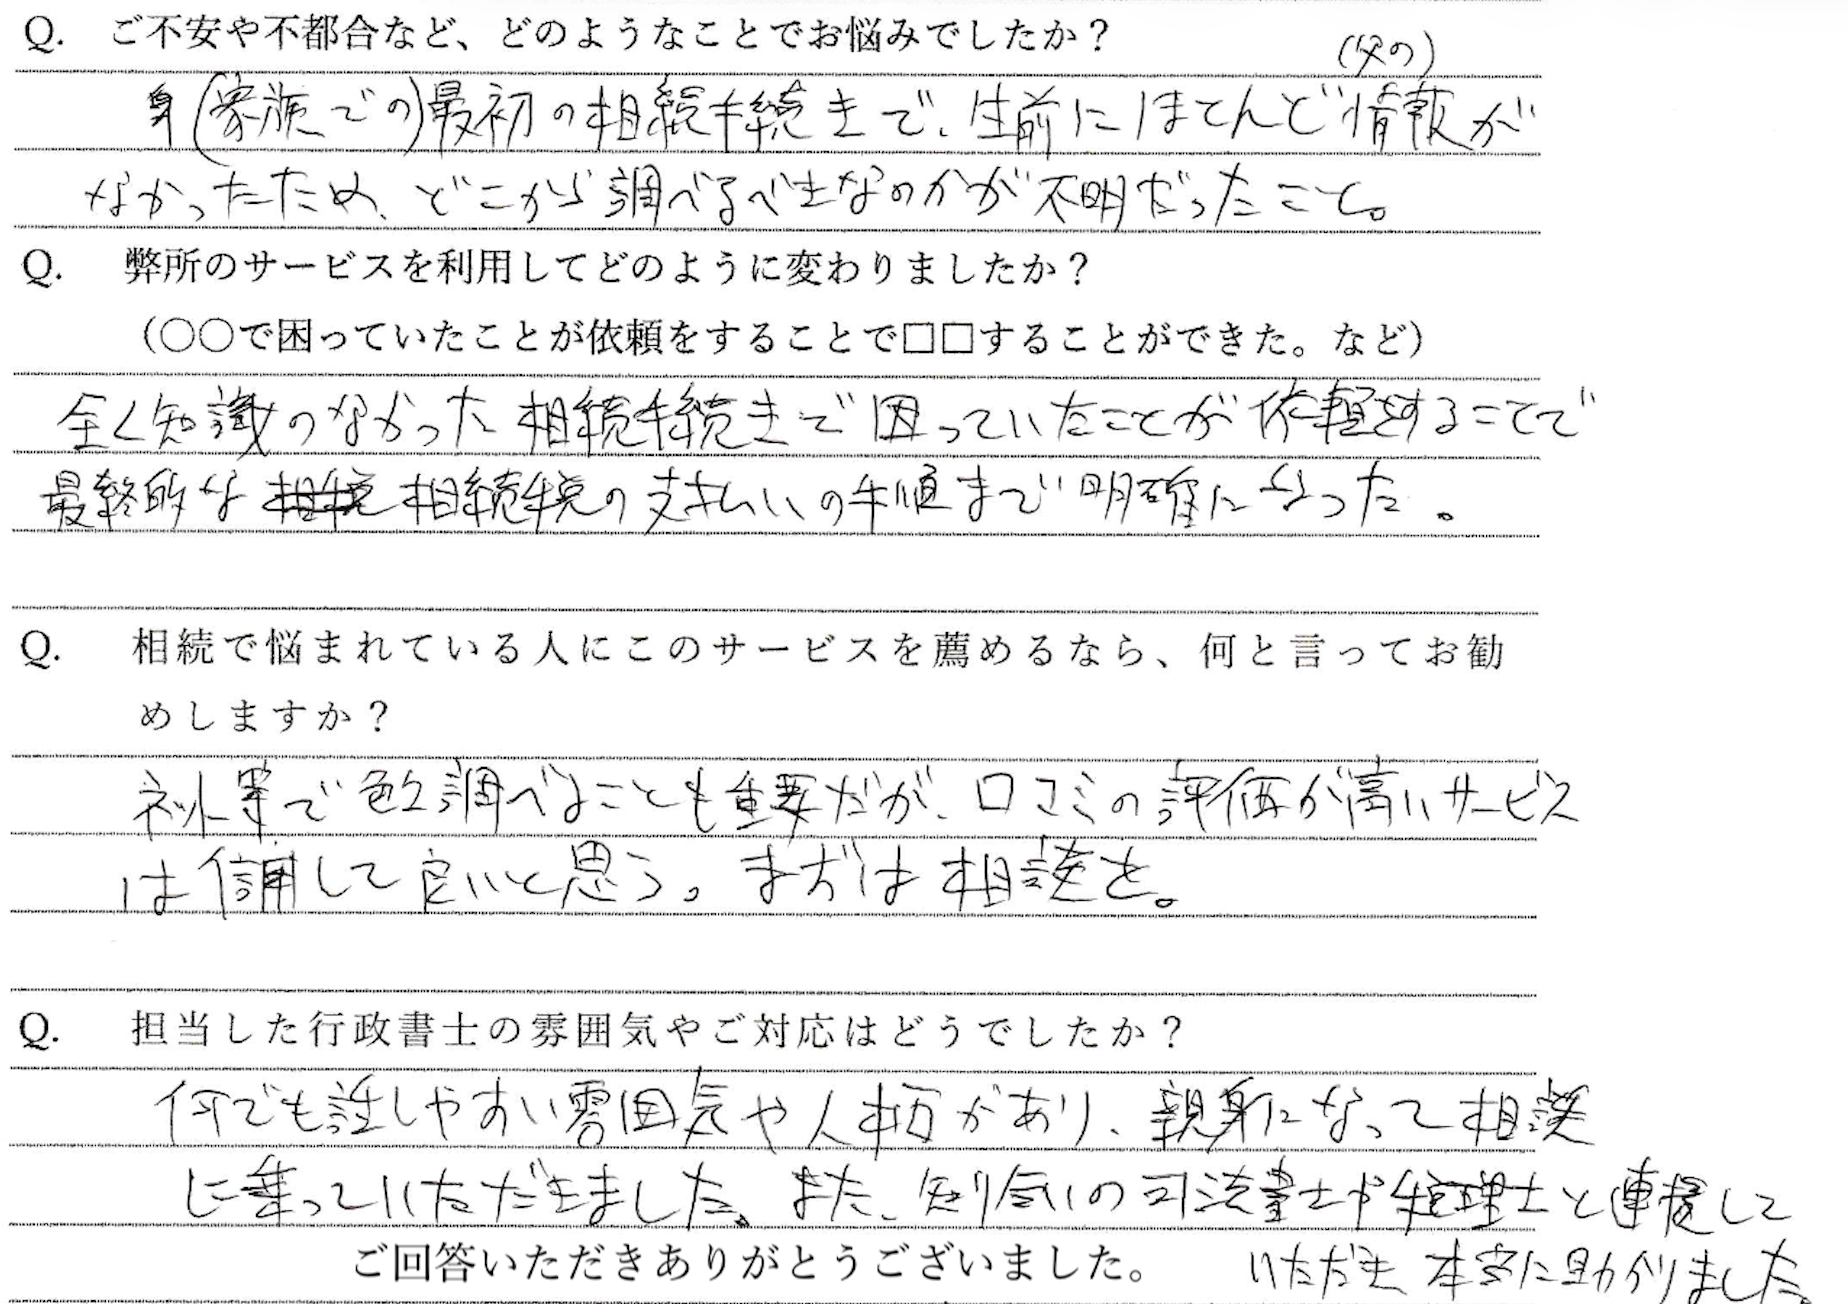 Q. ご不安や不都合など、どのようなことでお悩みでしたか？
(父の)
(家族での)最初の相続手続きで、生前にほとんど情報が
なかったため、どこから調べるべきなのかが不明だったこと。
Q. 弊所のサービスを利用してどのように変わりましたか？
（○○で困っていたことが依頼をすることで□□することができた。など）
全く知識のなかった相続手続きで困っていたことが依頼をすることで
最終的な 相続税の支払いの手順まで明確になった。
Q. 相続で悩まれている人にこのサービスを薦めるなら、何と言ってお勧
めしますか？
ネット等で色々調べることも重要だが、口コミの評価が高いサービス
は信用して良いと思う。まずは相談を。
Q. 担当した行政書士の雰囲気やご対応はどうでしたか？
何でも話しやすい雰囲気や人柄があり、親身になって相談
に乗っていただきました。また、知り合いの司法書士や税理士と連携して
いただき 本当に助かりました。
ご回答いただきありがとうございました。